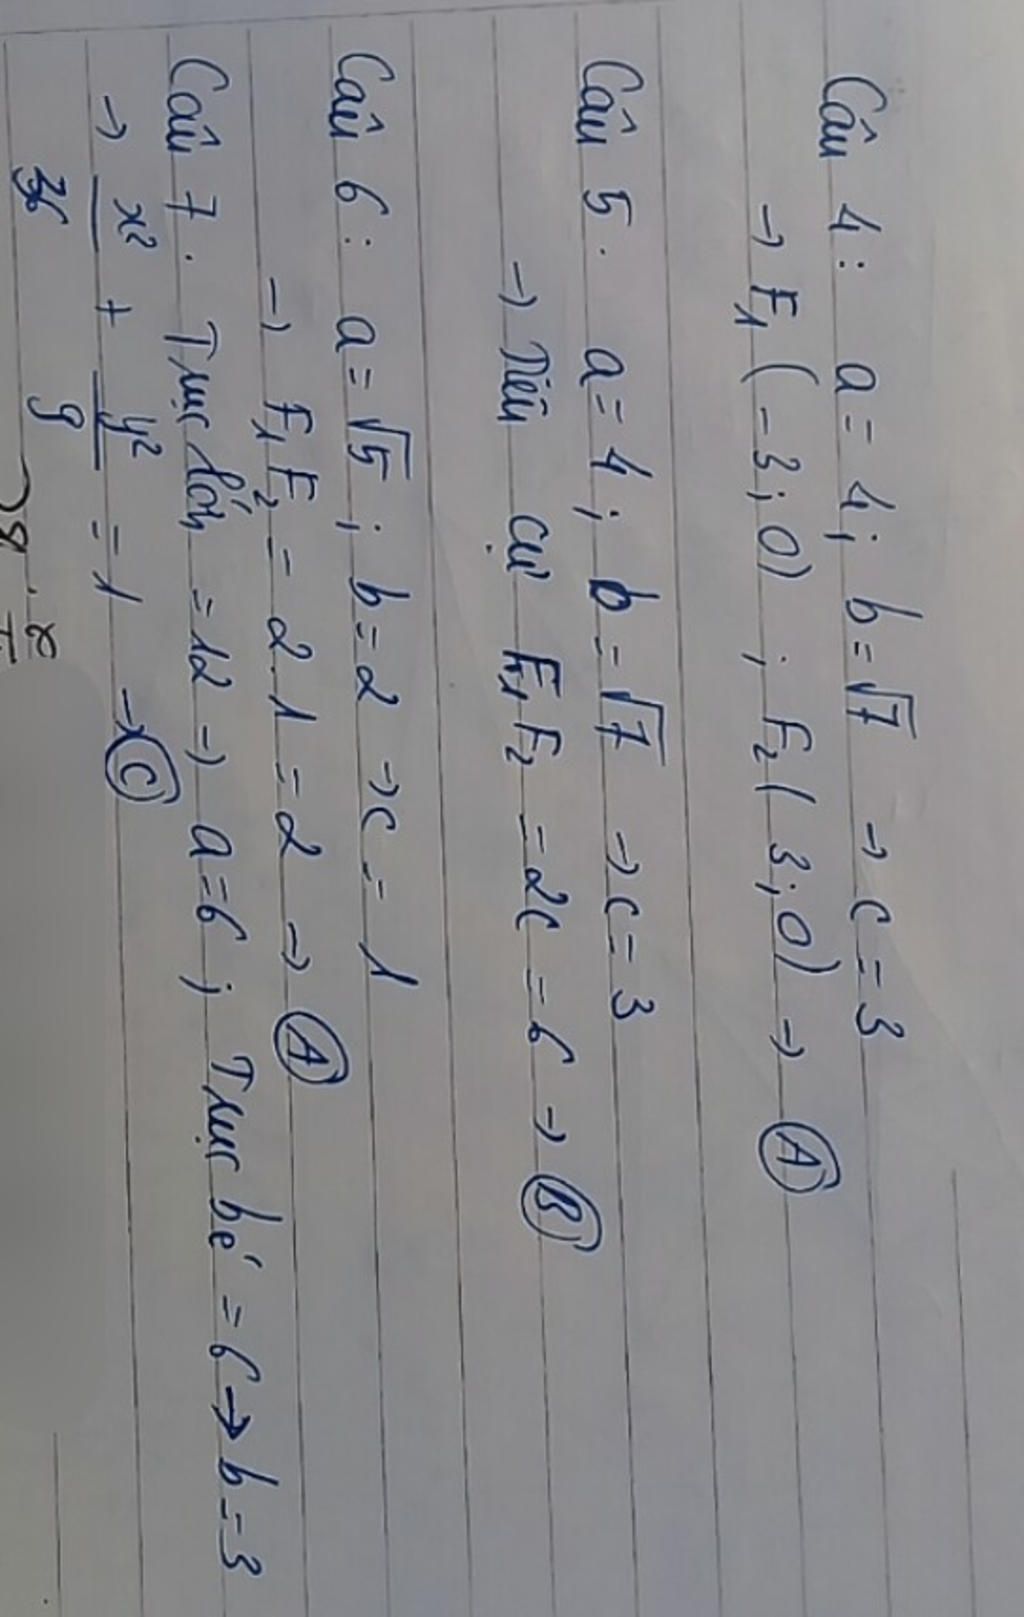 Câu 4: a = 4; b = √7 → c = 3
→ F₁ (-3; 0) ; F₂ ( 3; 0) → A
Câu 5. a = 4; b = √7 → c = 3
→ Tiêu cự F₁F₂ = 2c = 6 → B
Câu 6: a = √5; b = 2 → c = 1
→ F₁F₂ = 2.1 = 2 → A
Câu 7. Trục lớn = 12 → a = 6; Trục bé = 6 → b = 3
→ x²/36 + y²/9 = 1 → C